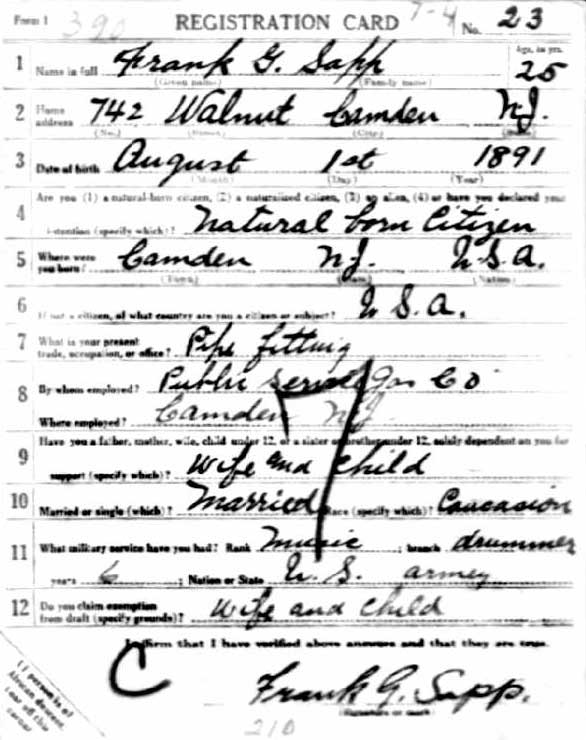 Form 1 390 REGISTRATION CARD 7-4 No. 23
1 Name in full Frank G. Sapp Age, in yrs. 25
(Given name) (Family name)
2 Home address 742 Walnut Camden N.J.
(No.) (Street) (City) (State)
3 Date of birth August 1st 1891
(Month) (Day) (Year)
4 Are you (1) a natural-born citizen, (2) a naturalized citizen, (3) an alien, (4) or have you declared your
intention (specify which)? Natural born Citizen
5 Where were you born? Camden N.J. U.S.A.
(Town) (State) (Nation)
6 If not a citizen, of what country are you a citizen or subject? U.S.A.
7 What is your present trade, occupation, or office? Pipe fitting
8 By whom employed? Public Service Gas Co
Where employed? Camden N.J.
7
9 Have you a father, mother, wife, child under 12, or a sister or brother under 12, solely dependent on you for
support (specify which)? Wife and Child
10 Married or single (which)? Married Race (specify which)? Caucasion
11 What military service have you had? Rank music ; branch drummer
years 6 ; Nation or State U.S. armey
12 Do you claim exemption from draft (specify grounds)? Wife and Child
I affirm that I have verified above answers and that they are true.
C
Frank G. Sapp.
(Signature or mark)
210
If person is of
African descent,
tear off this
corner